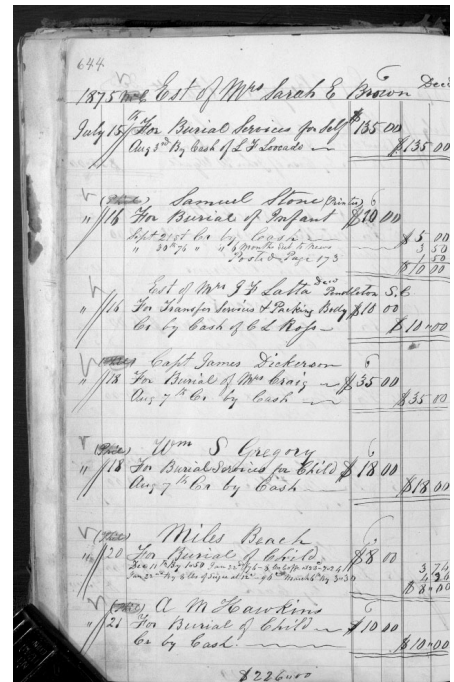 644
1875 Est of Mrs Sarah E Brown Decd
July 15th For Burial Services for Self $135 00
Aug 3rd By Cash of L F $135 00
Samuel Stone (Printer)
" 16 For Burial of Infant $10 00
Sept 21st Cr by Cash $5 00
" 20th 76 " " 3 50
Posted Page 173 1 50
$10 00
Est of Mrs J F Latta Decd Pendleton S.C.
" 16 For Transfer Services & Packing Body $10 00
Cr by Cash of C L Ross $10 00
Capt James Dickerson
" 18 For Burial of Mrs Craig $35 00
Aug 7th Cr by Cash $35 00
Wm S Gregory
" 18 For Burial Services for Child $18 00
Aug 7th Cr by Cash $18 00
Miles Beach
" 20 For Burial of Child $8 00
Dec 11th By 1.50 Jan 22nd 76 3 74
Jan 22nd By 8 lbs of Sugar at 12 4 26
$8 00
A M Hawkins
" 21 For Burial of Child $10 00
Cr by Cash $10 00
$226.00